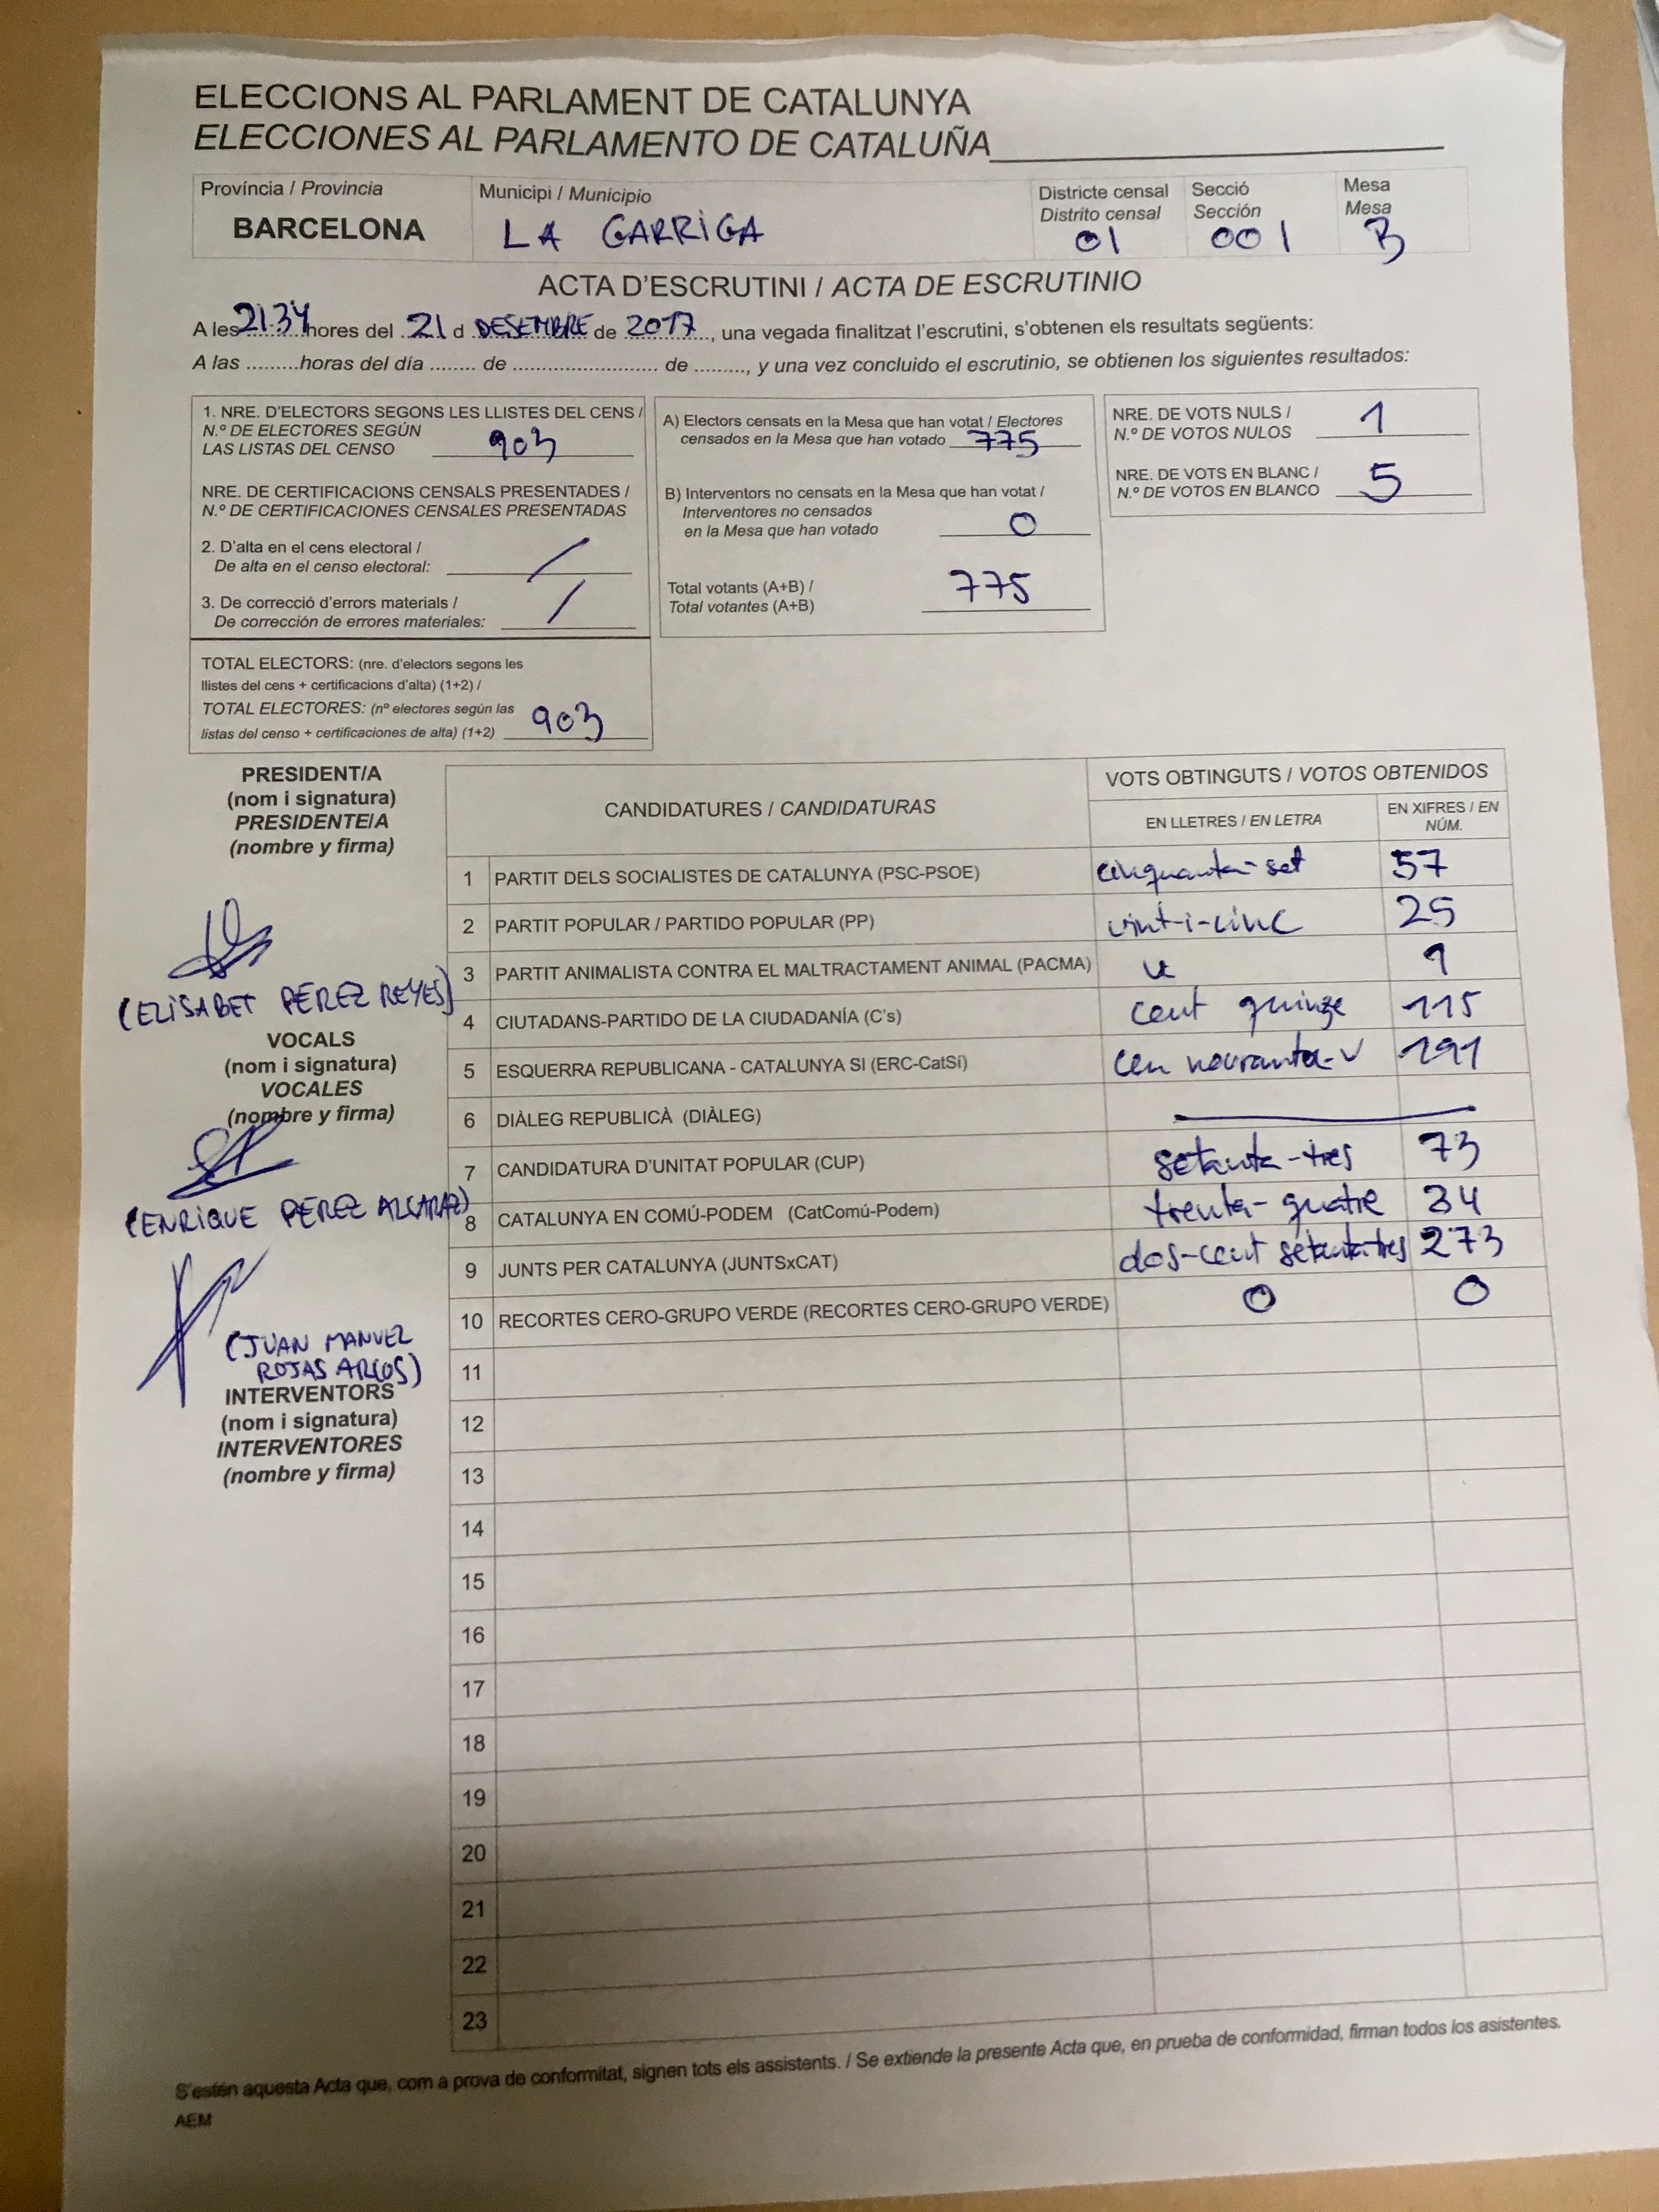 ELECCIONS AL PARLAMENT DE CATALUNYA
ELECCIONES AL PARLAMENTO DE CATALUÑA
Província / Provincia
BARCELONA
Municipi / Municipio
LA GARRIGA
Districte censal
Distrito censal
01
Secció
Sección
001
Mesa
Mesa
B
ACTA D'ESCRUTINI / ACTA DE ESCRUTINIO
A les 21:34 hores del 21 d DESEMBRE de 2017, una vegada finalitzat l'escrutini, s'obtenen els resultats següents:
A las .........horas del día ........ de .......................... de ........., y una vez concluido el escrutinio, se obtienen los siguientes resultados:
1. NRE. D'ELECTORS SEGONS LES LLISTES DEL CENS /
N.º DE ELECTORES SEGÚN
LAS LISTAS DEL CENSO 903
NRE. DE CERTIFICACIONS CENSALS PRESENTADES /
N.º DE CERTIFICACIONES CENSALES PRESENTADAS
2. D'alta en el cens electoral /
De alta en el censo electoral: /
3. De correcció d'errors materials /
De corrección de errores materiales: /
TOTAL ELECTORS: (nre. d'electors segons les
llistes del cens + certificacions d'alta) (1+2) /
TOTAL ELECTORES: (nº electores según las
listas del censo + certificaciones de alta) (1+2) 903
A) Electors censats en la Mesa que han votat / Electores
censados en la Mesa que han votado 775
B) Interventors no censats en la Mesa que han votat /
Interventores no censados
en la Mesa que han votado 0
Total votants (A+B) /
Total votantes (A+B) 775
NRE. DE VOTS NULS /
N.º DE VOTOS NULOS 1
NRE. DE VOTS EN BLANC /
N.º DE VOTOS EN BLANCO 5
PRESIDENT/A
(nom i signatura)
PRESIDENTE/A
(nombre y firma)
(ELISABET PÉREZ REYES)
VOCALS
(nom i signatura)
VOCALES
(nombre y firma)
(ENRIQUE PÉREZ ALCARAZ)
(JUAN MANUEL
ROJAS ARCOS)
INTERVENTORS
(nom i signatura)
INTERVENTORES
(nombre y firma)
CANDIDATURES / CANDIDATURAS
VOTS OBTINGUTS / VOTOS OBTENIDOS
EN LLETRES / EN LETRA
EN XIFRES / EN
NÚM.
1 PARTIT DELS SOCIALISTES DE CATALUNYA (PSC-PSOE) cinquanta-set 57
2 PARTIT POPULAR / PARTIDO POPULAR (PP) vint-i-cinc 25
3 PARTIT ANIMALISTA CONTRA EL MALTRACTAMENT ANIMAL (PACMA) u 1
4 CIUTADANS-PARTIDO DE LA CIUDADANÍA (C's) cent quinze 115
5 ESQUERRA REPUBLICANA - CATALUNYA SI (ERC-CatSí) cen novranta-u 191
6 DIÀLEG REPUBLICÀ (DIÀLEG)
7 CANDIDATURA D'UNITAT POPULAR (CUP) setanta-tres 73
8 CATALUNYA EN COMÚ-PODEM (CatComú-Podem) trenta-quatre 34
9 JUNTS PER CATALUNYA (JUNTSxCAT) dos-cent setanta-tres 273
10 RECORTES CERO-GRUPO VERDE (RECORTES CERO-GRUPO VERDE) 0 0
11
12
13
14
15
16
17
18
19
20
21
22
23
S'estén aquesta Acta que, com a prova de conformitat, signen tots els assistents. / Se extiende la presente Acta que, en prueba de conformidad, firman todos los asistentes.
AEM